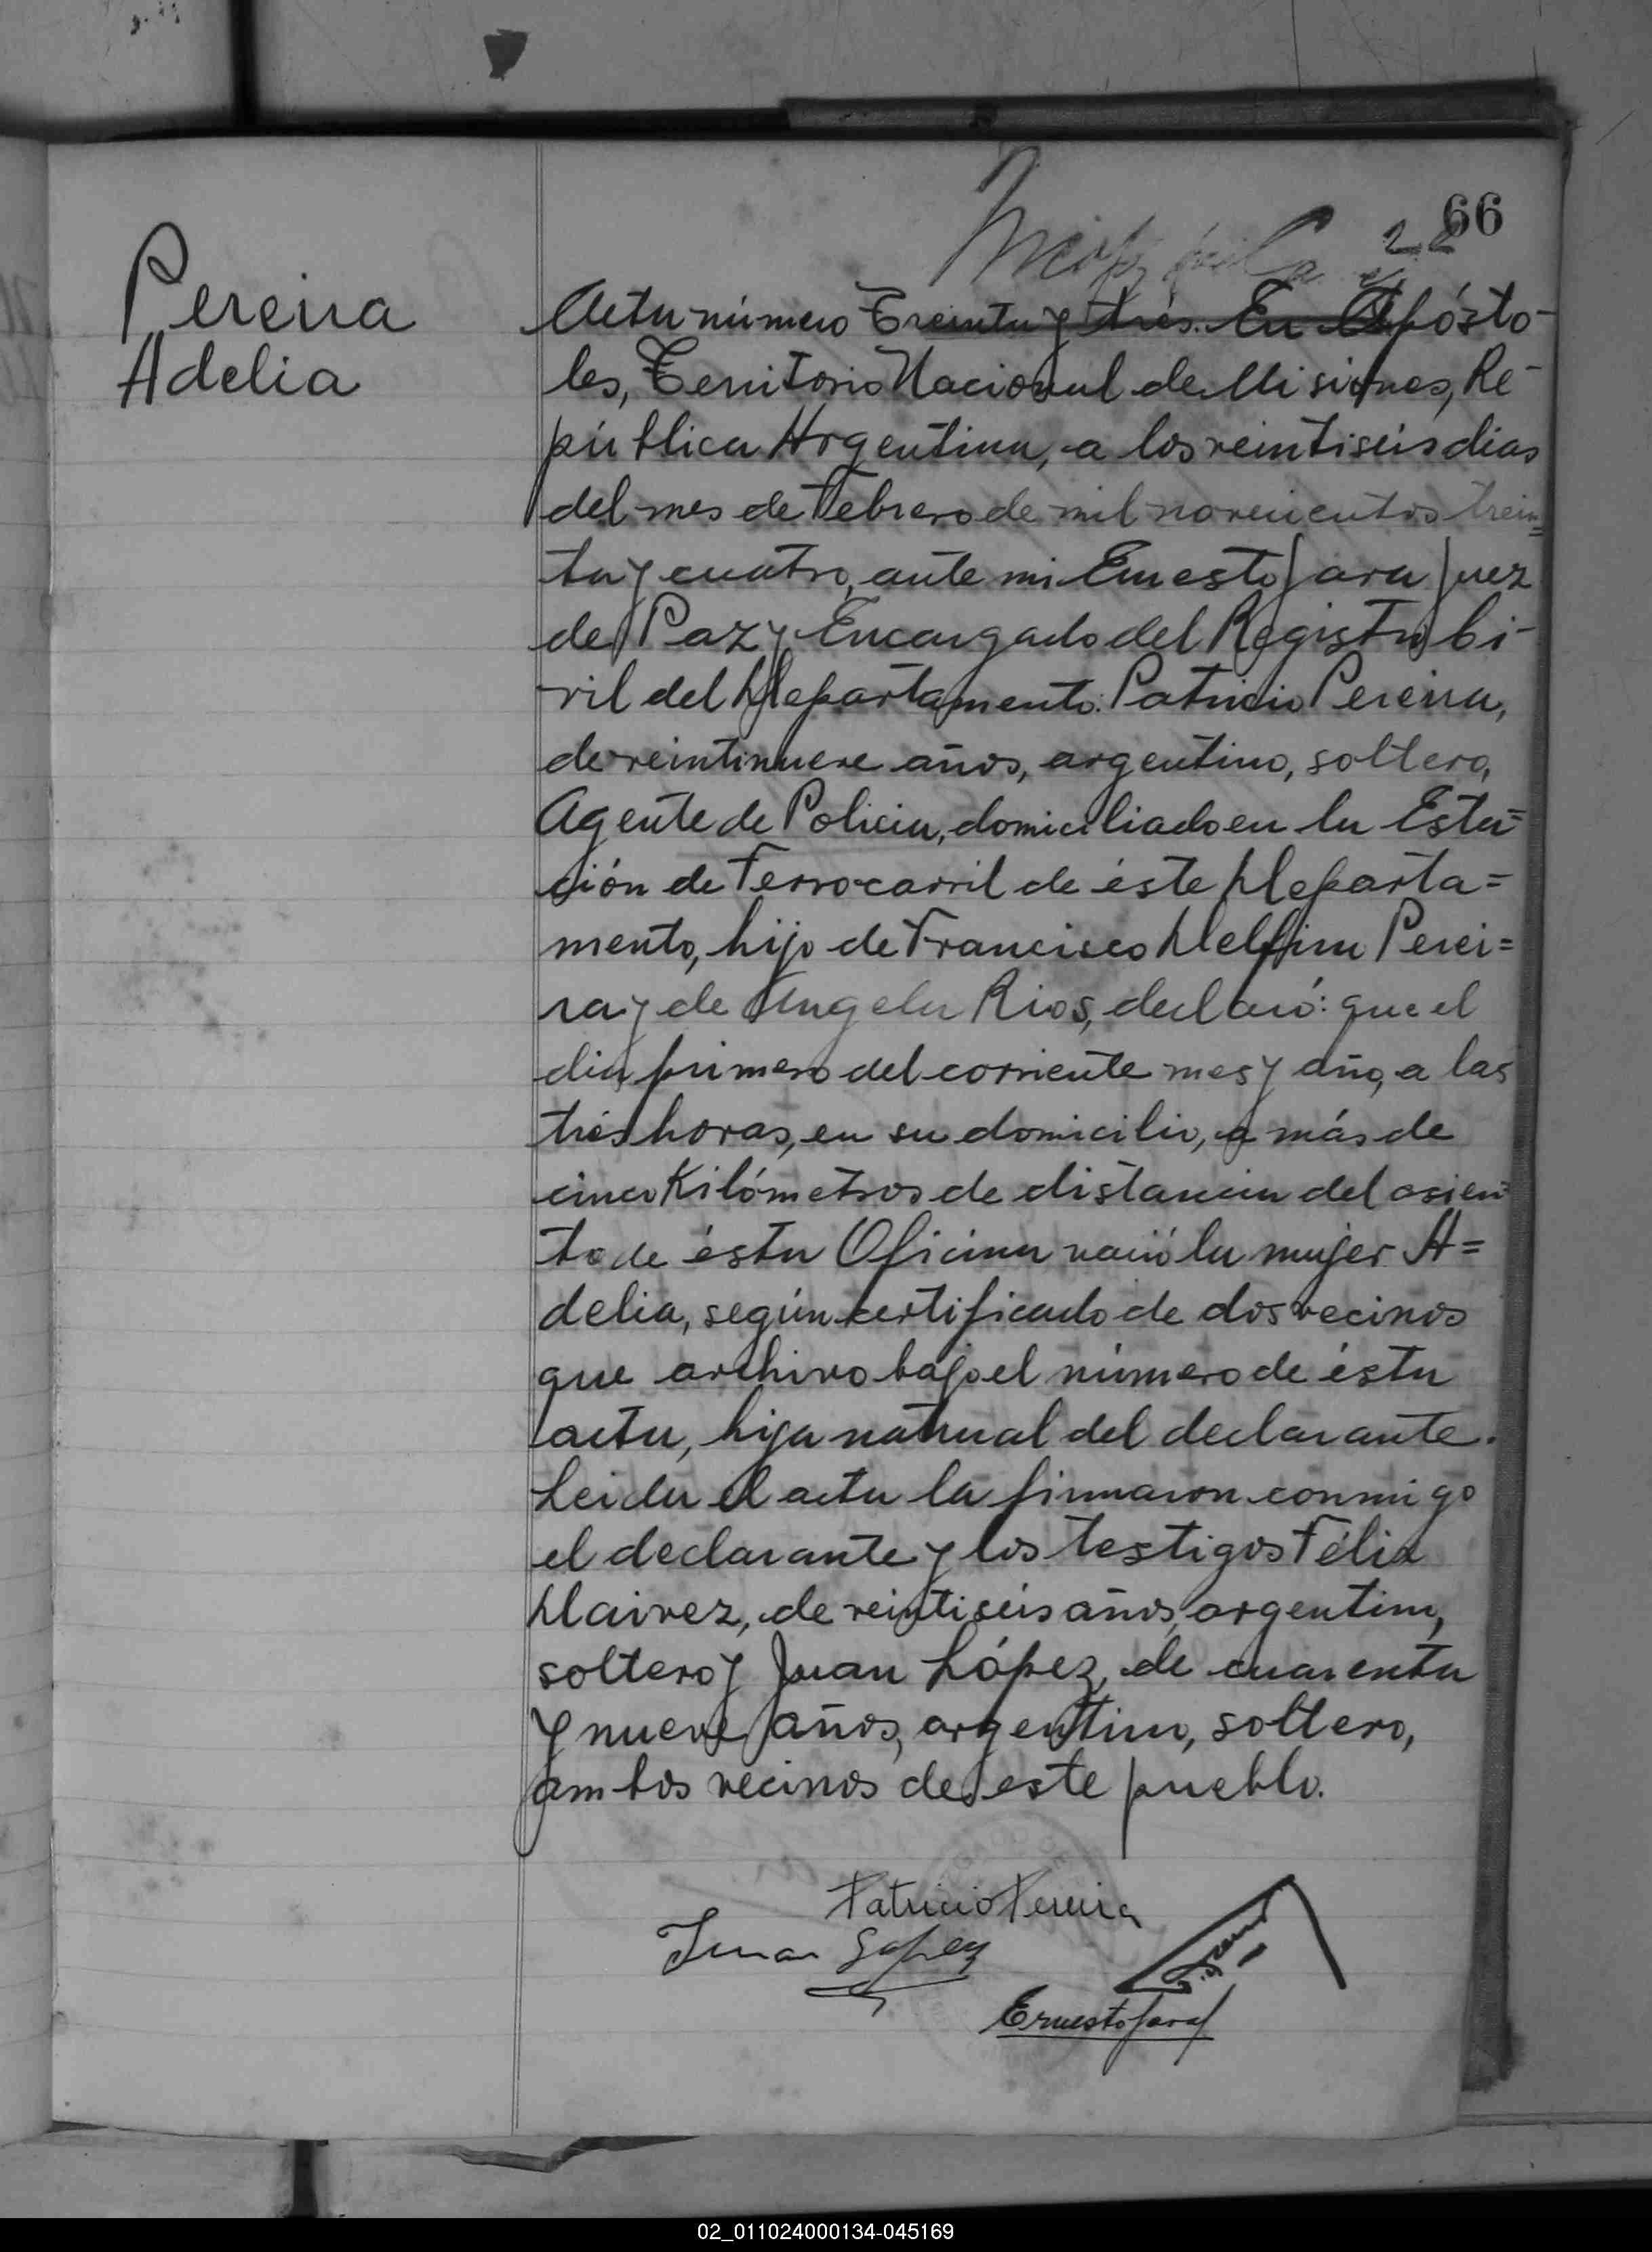 66
Pereira
Adelia
Acta número Treinta y trés. En Apósto-
les, Territorio Nacional de Misiones, Re-
pública Argentina, a los veintiseis dias
del mes de Febrero de mil novecientos trein=
ta y cuatro, ante mi Ernesto Jara Juez
de Paz y Encargado del Registro Ci-
vil del Departamento: Patricio Pereira,
de veintinueve años, argentino, soltero,
Agente de Policia, domiciliado en la Esta=
ción de Ferrocarril de éste Departa=
mento, hijo de Francisco Delfino Perei=
ra y de Angela Rios, declaró: que el
dia primero del corriente mes y año, a las
trés horas, en su domicilio, a más de
cinco Kilómetros de distancia del asien=
to de ésta Oficina nació la mujer A=
delia, según certificado de dos vecinos
que archivo bajo el número de ésta
acta, hija natural del declarante.
Leida el acta la firmaron conmigo
el declarante y los testigos Félix
de veintiseis años, argentino,
soltero y Juan López, de cuarenta
y nueve años, argentino, soltero,
ambos vecinos de este pueblo.
Patricio Pereira
Juan Lopez
Ernesto Jara
02_011024000134-045169